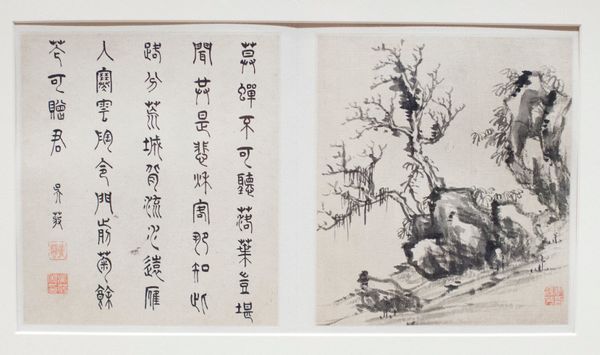 莫蟬不可聽落葉豈堪
聞共是悲秌客那知此
路分荒城背流水遠雁
入寒雲陶令門前菊餘
花可贈君 吳